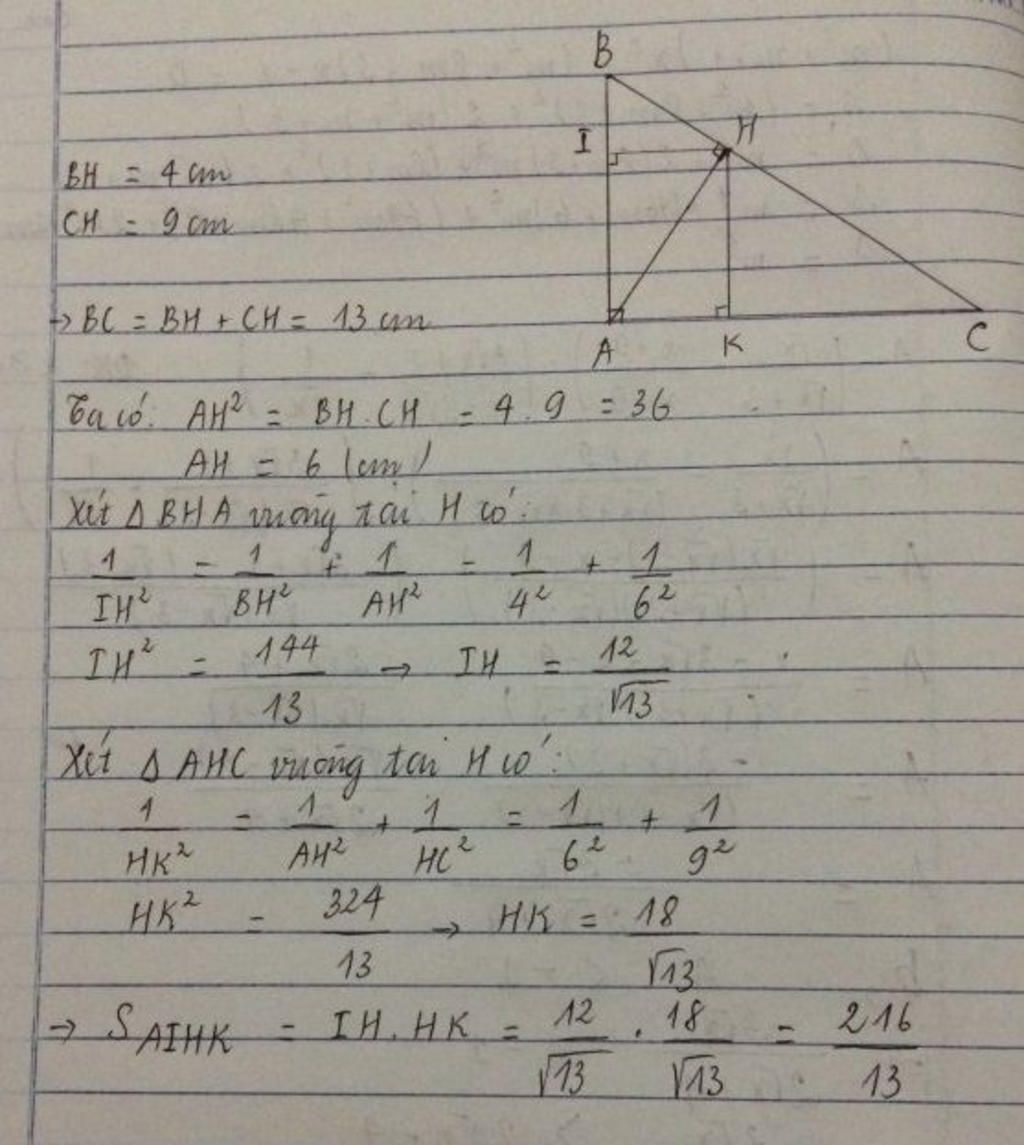 B
I
H
BH = 4 cm
CH = 9 cm
→ BC = BH + CH = 13 cm
A K C
Ta có: AH² = BH . CH = 4 . 9 = 36
AH = 6 (cm)
Xét Δ BHA vuông tại H có:
1/IH² = 1/BH² + 1/AH² = 1/4² + 1/6²
IH² = 144/13 → IH = 12/√13
Xét Δ AHC vuông tại H có:
1/HK² = 1/AH² + 1/HC² = 1/6² + 1/9²
HK² = 324/13 → HK = 18/√13
→ S_AIHK = IH . HK = 12/√13 . 18/√13 = 216/13